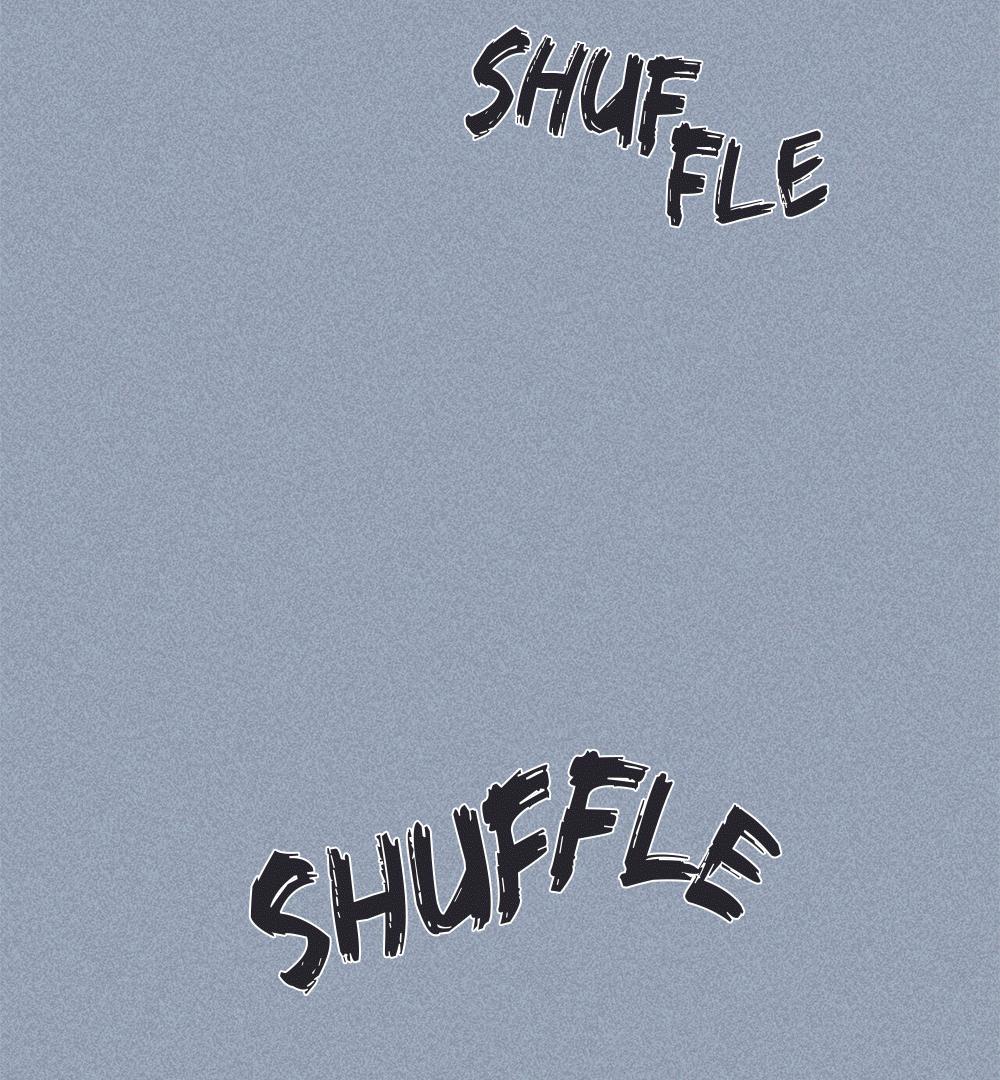 SHUFFLE
SHUFFLE